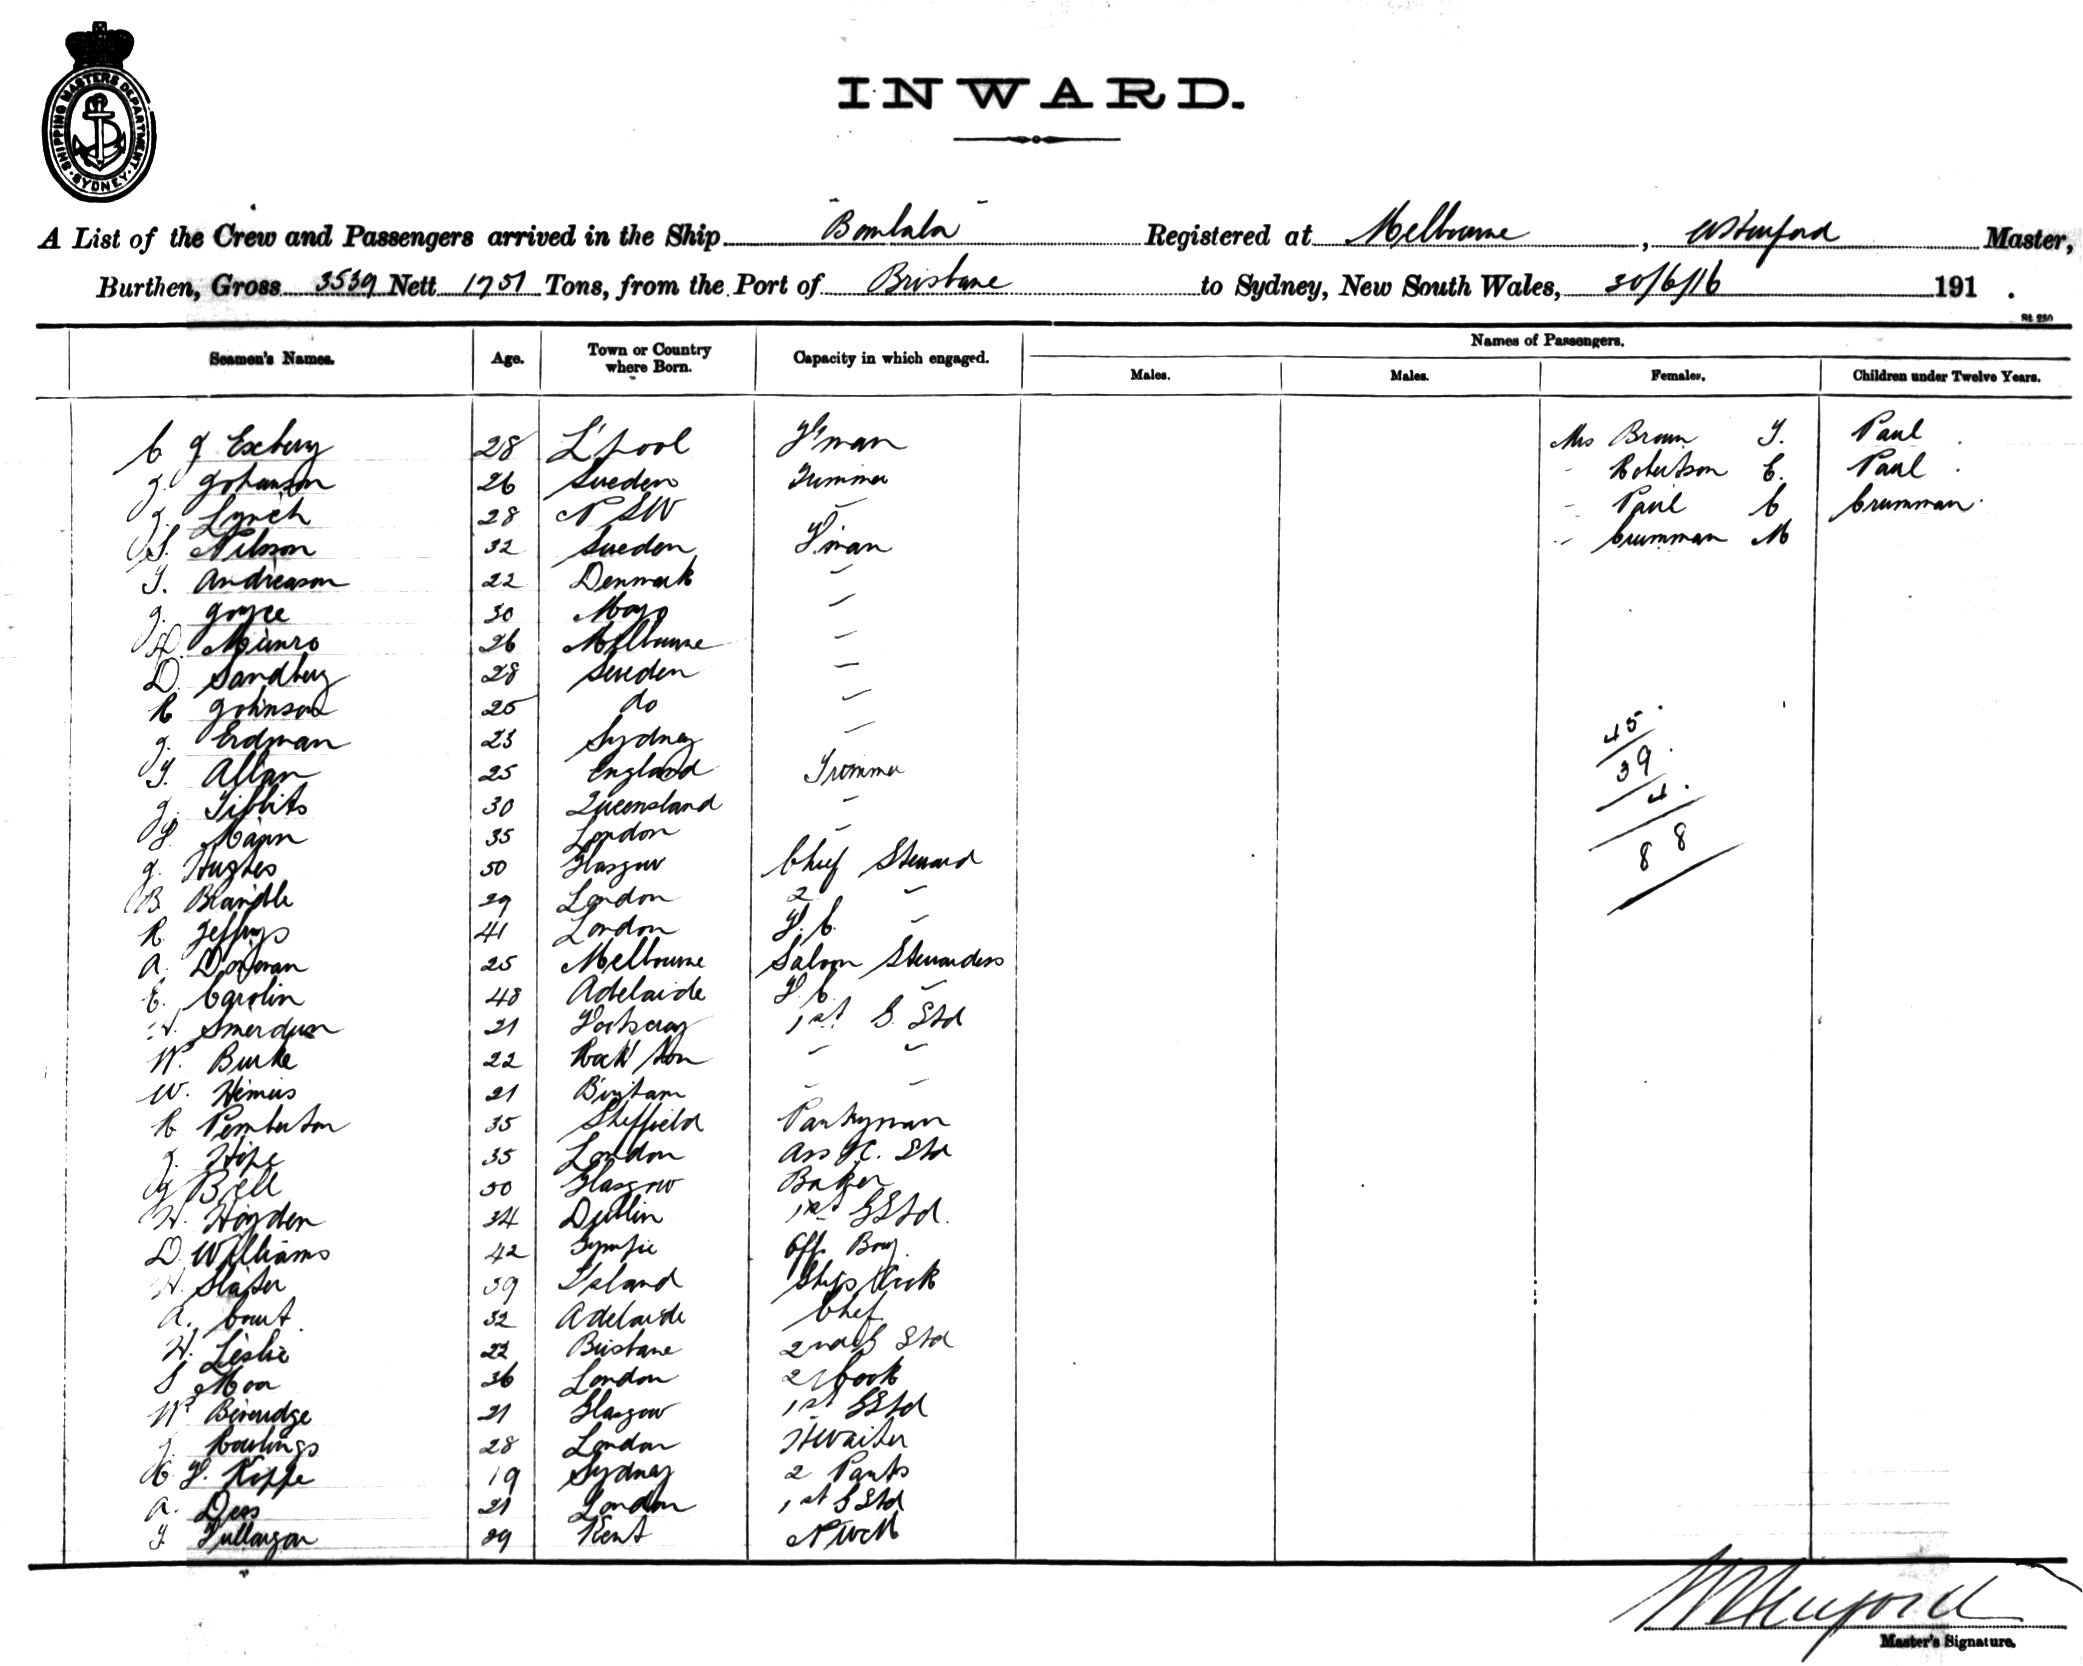 SHIPPING MASTERS DEPARTMENT. SYDNEY.
INWARD.
A List of the Crew and Passengers arrived in the Ship "Bombala" Registered at Melbourne, Master,
Burthen, Gross 3539 Nett 1751 Tons, from the Port of Brisbane to Sydney, New South Wales, 30/6/16 191 .
St. 250
Seamen's Names. Age. Town or Country where Born. Capacity in which engaged. Names of Passengers.
Males. Males. Females. Children under Twelve Years.
C J Exbery 28 L'pool F'man Mrs Brown J. Paul
J. Johanson 26 Sweden Trimmer " Robertson E. Paul
J. Lynch 28 NSW " " Paul C Crumman
S. Nilsson 32 Sweden F'man " Crumman M
T. Andreason 22 Denmark "
J. Joyce 30 Mayo "
D. Munro 26 Melbourne "
D. Sandberg 28 Sweden "
R Johnson 25 do "
J. Erdman 23 Sydney " 45
T. Allan 25 England Trimmer 39
J. Tibbits 30 Queensland " 4
F. Mann 35 London " 88
J. Hughes 50 Glasgow Chief Steward
B. 29 London 2 "
R. Jeffreys 41 London F. C. "
A. Donovan 25 Melbourne Saloon Stewardess
E. Carolin 48 Adelaide F. C. "
H. Smerdon 21 Footscray 1st S. Std
W. Burke 22 Rock'ton " "
W. 21 " "
R Pemberton 35 Sheffield Pantryman
J. Hope 35 London Ass P. Std
J Bell 50 Glasgow Baker
H. Hayden 34 Dublin 1st S Std.
D. Williams 42 Gympie Off. Boy.
H. Slater 39 Ships Cook
A. Court 32 Adelaide Chef
H. Leslie 22 Brisbane 2nd S Std
S Moor 36 London 2/Cook
W. Beveridge 21 Glasgow 1st S Std
J. Rowlings 28 London H Waiter
C F. Kippe 19 Sydney 2 Pants
A. Dess 21 London 1st S Std
T. Tullargar 29 Kent N Wch
Master's Signature.